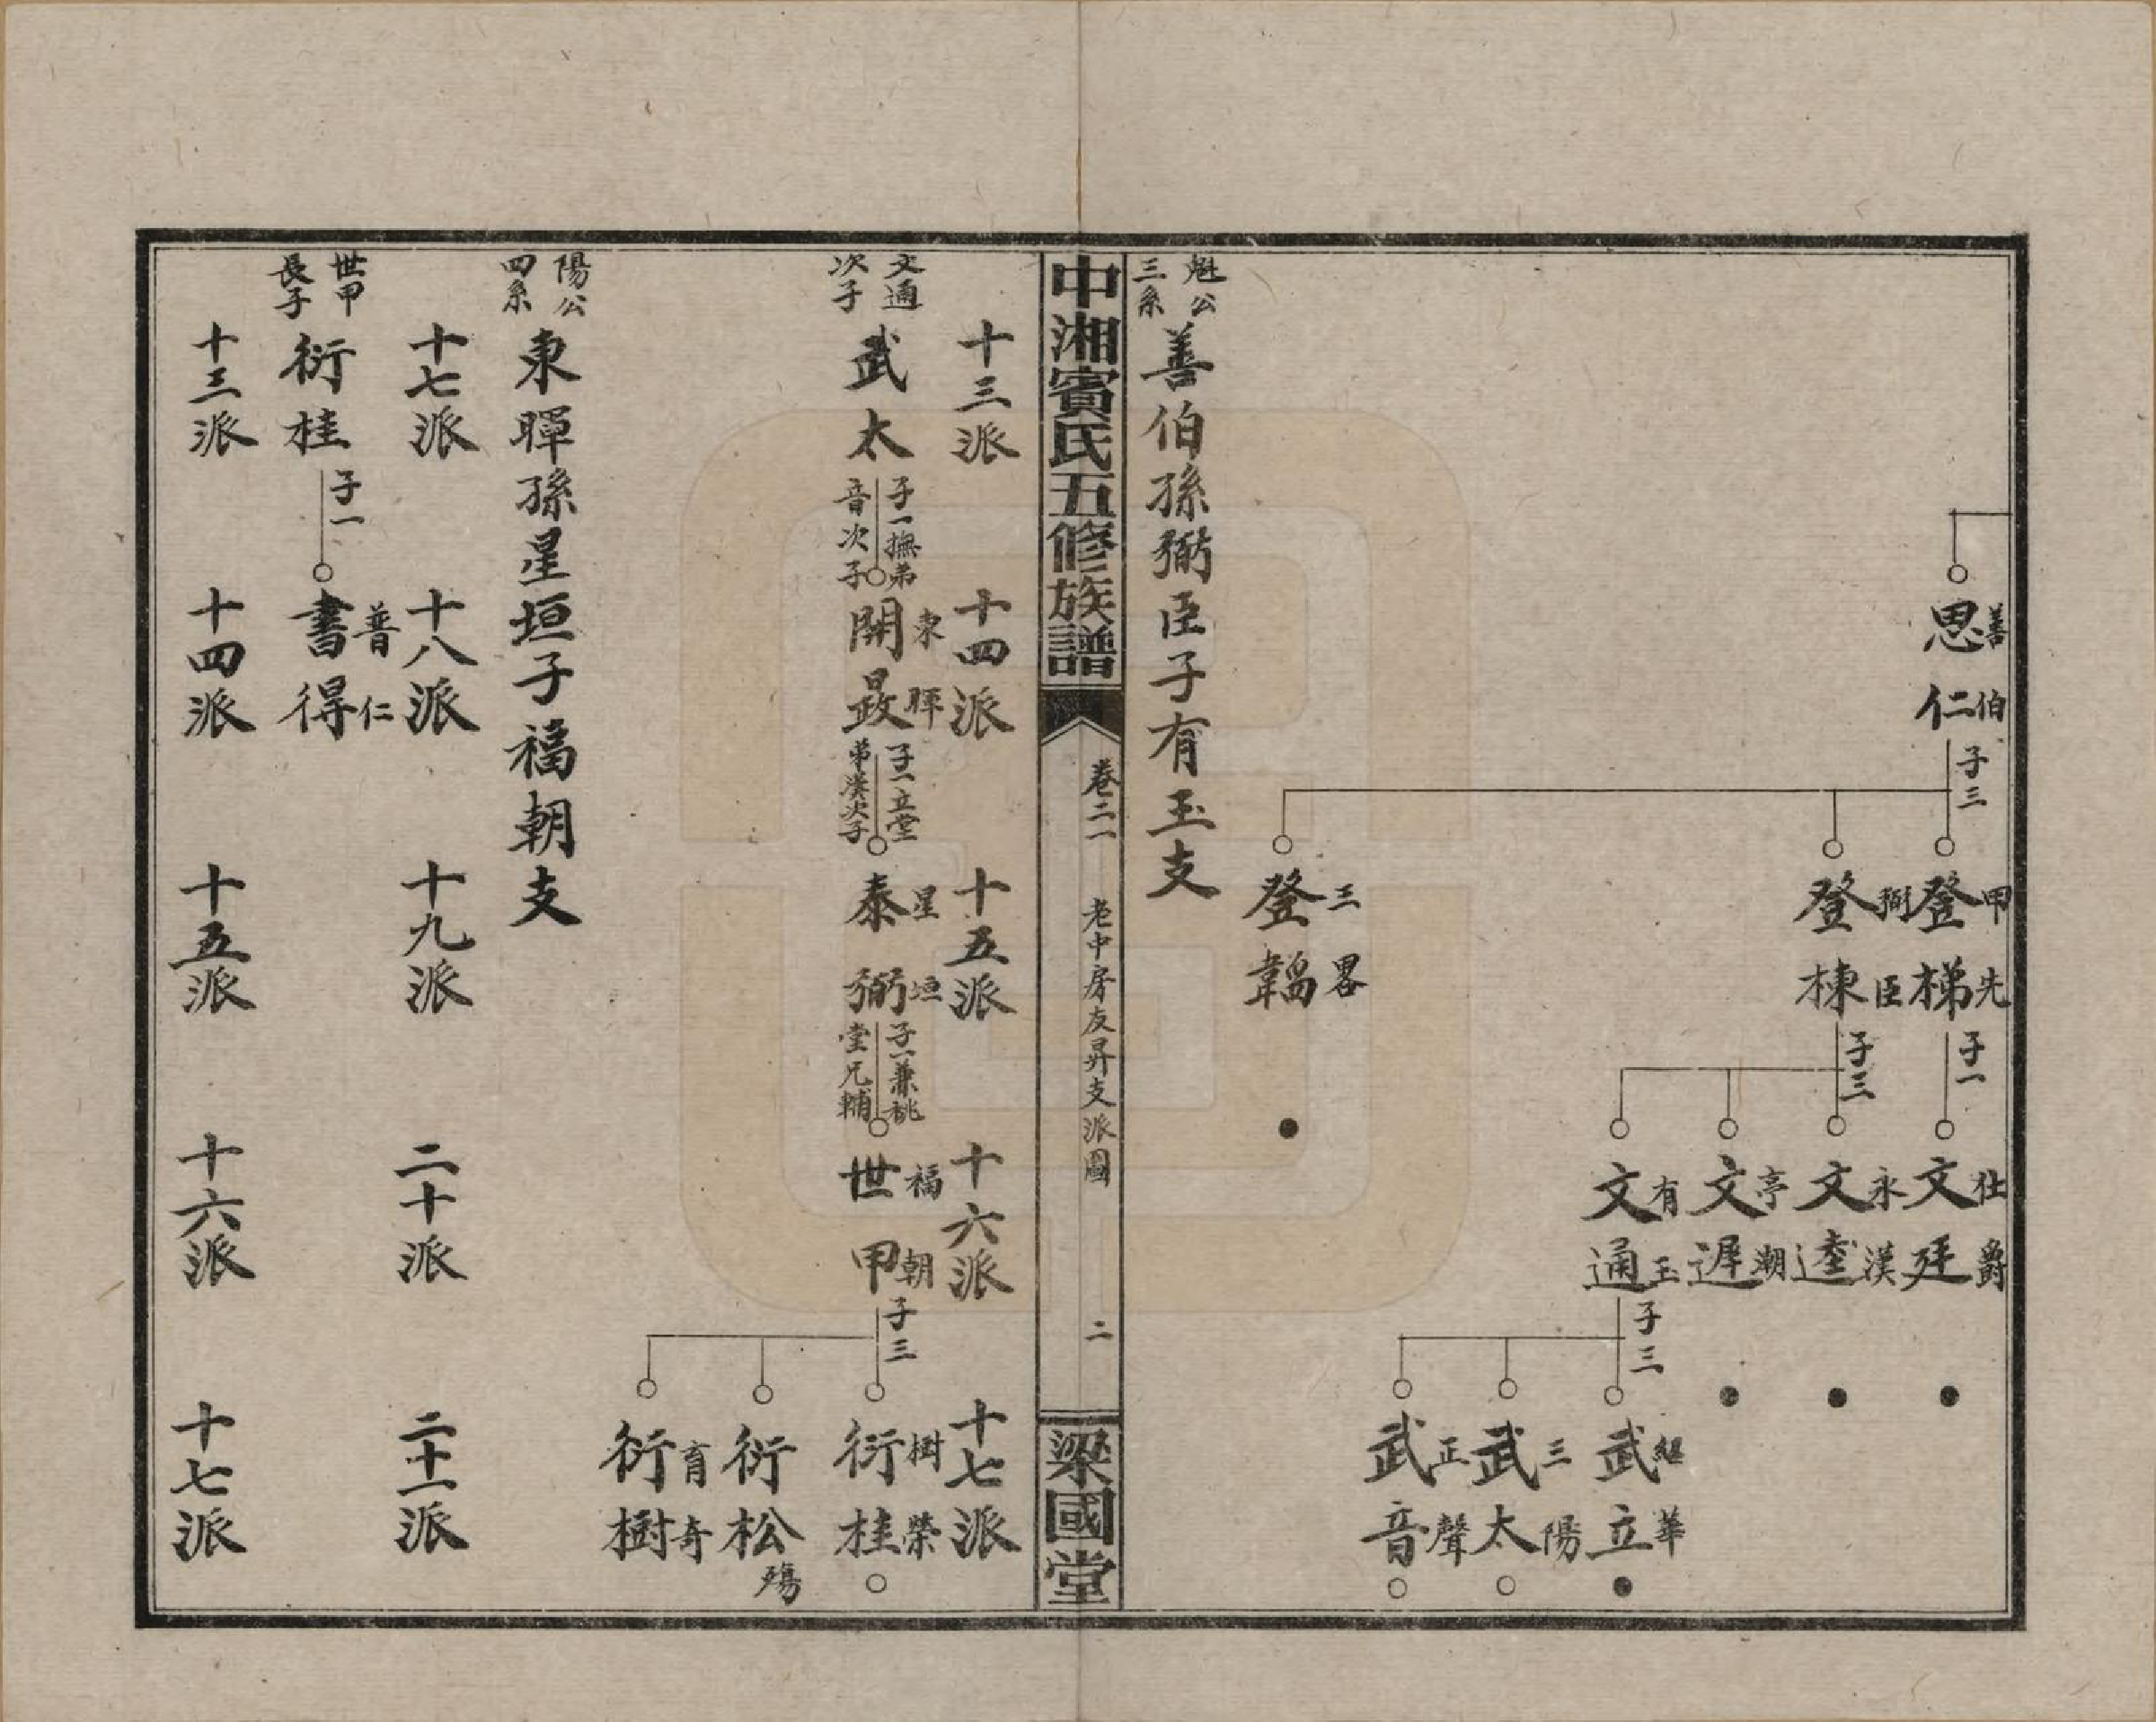 思仁 善伯 子三
登梯 甲先 子一
登棟 弼臣 子三
登韜 三畧
文廷 仕爵
文逵 永漢
文遲 亭潮
文通 有玉 子三
武立 繼華
武太 三陽
武音 正聲
魁公三系
善伯孫弼臣子有玉支
中湘賓氏五修族譜
卷二一
老中房友昇支派圖
二
梁國堂
十三派
十四派
十五派
十六派
十七派
文通次子
武太 子一撫弟音次子
開晸 東暉 子一立堂弟漢次子
泰弼 星垣 子一兼祧堂兄輔
世甲 福朝 子三
衍桂 樹榮
衍松 殤
衍樹 育奇
陽公四系
東暉孫星垣子福朝支
十七派
十八派
十九派
二十派
二十一派
世甲長子
衍桂 子一
書得 普仁
十三派
十四派
十五派
十六派
十七派